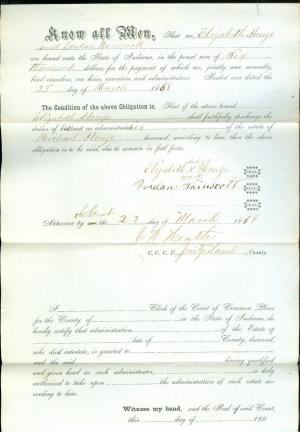 Know all Men, That we, Elizabeth Honze
and Jordan Rainscott
are bound unto the State of Indiana, in the penal sum of Six
thousand dollars, for the payment of which we, jointly and severally,
bind ourselves, our heirs, executors, and administrators. Sealed and dated the
23rd day of March 1868
The Condition of the above Obligation is, That if the above bound
Elizabeth Honze shall faithfully discharge the
duties of as administrat of the estate of
Michael Honze deceased, according to law, then the above
obligation is to be void, else to remain in full force.
her
Elizabeth X Honze
mark
Jordan Rainscott
Approved by the 23 day of March 1868
C. C. C. P. County.
I, Clerk of the Court of Common Pleas
for the County of in the State of Indiana, do
hereby certify that administration of the Estate of
late of County, deceased,
who died intestate, is granted to
and the said having qualified
and given bond as such administrator, is duly
authorized to take upon the administration of such estate according to law.
Witness my hand, and the Seal of said Court,
this day of 186